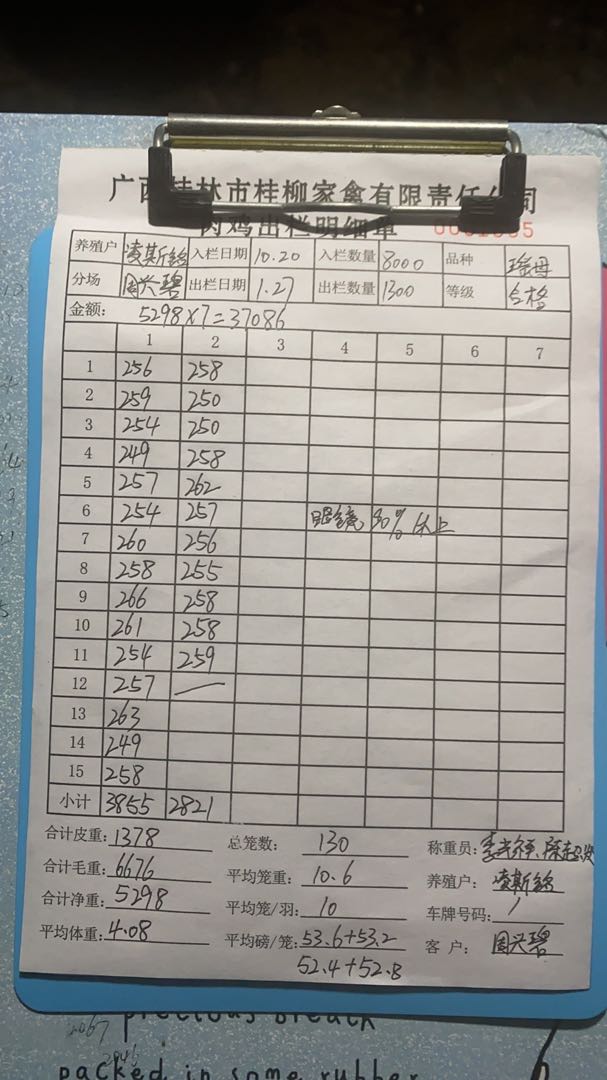 广西桂林市桂柳家禽有限责任公司
肉鸡出栏明细单
养殖户 凌斯铭 入栏日期 10.20 入栏数量 8000 品种 瑶母
分场 周兴碧 出栏日期 1.27 出栏数量 1300 等级 合格
金额: 5298×7=37086
1 2 3 4 5 6 7
1 256 258
2 259 250
3 254 250
4 249 258
5 257 262
6 254 257 眼镜 30% 以上
7 260 256
8 258 255
9 266 258
10 261 258
11 254 259
12 257 —
13 263
14 249
15 258
小计 3855 2821
合计皮重: 1378 总笼数: 130 称重员:
合计毛重: 6676 平均笼重: 10.6 养殖户: 凌斯铭
合计净重: 5298 平均笼/羽: 10 车牌号码: /
平均体重: 4.08 平均磅/笼: 53.6+53.2 客 户: 周兴碧
52.4+52.8
precious breath
packed in some rubber